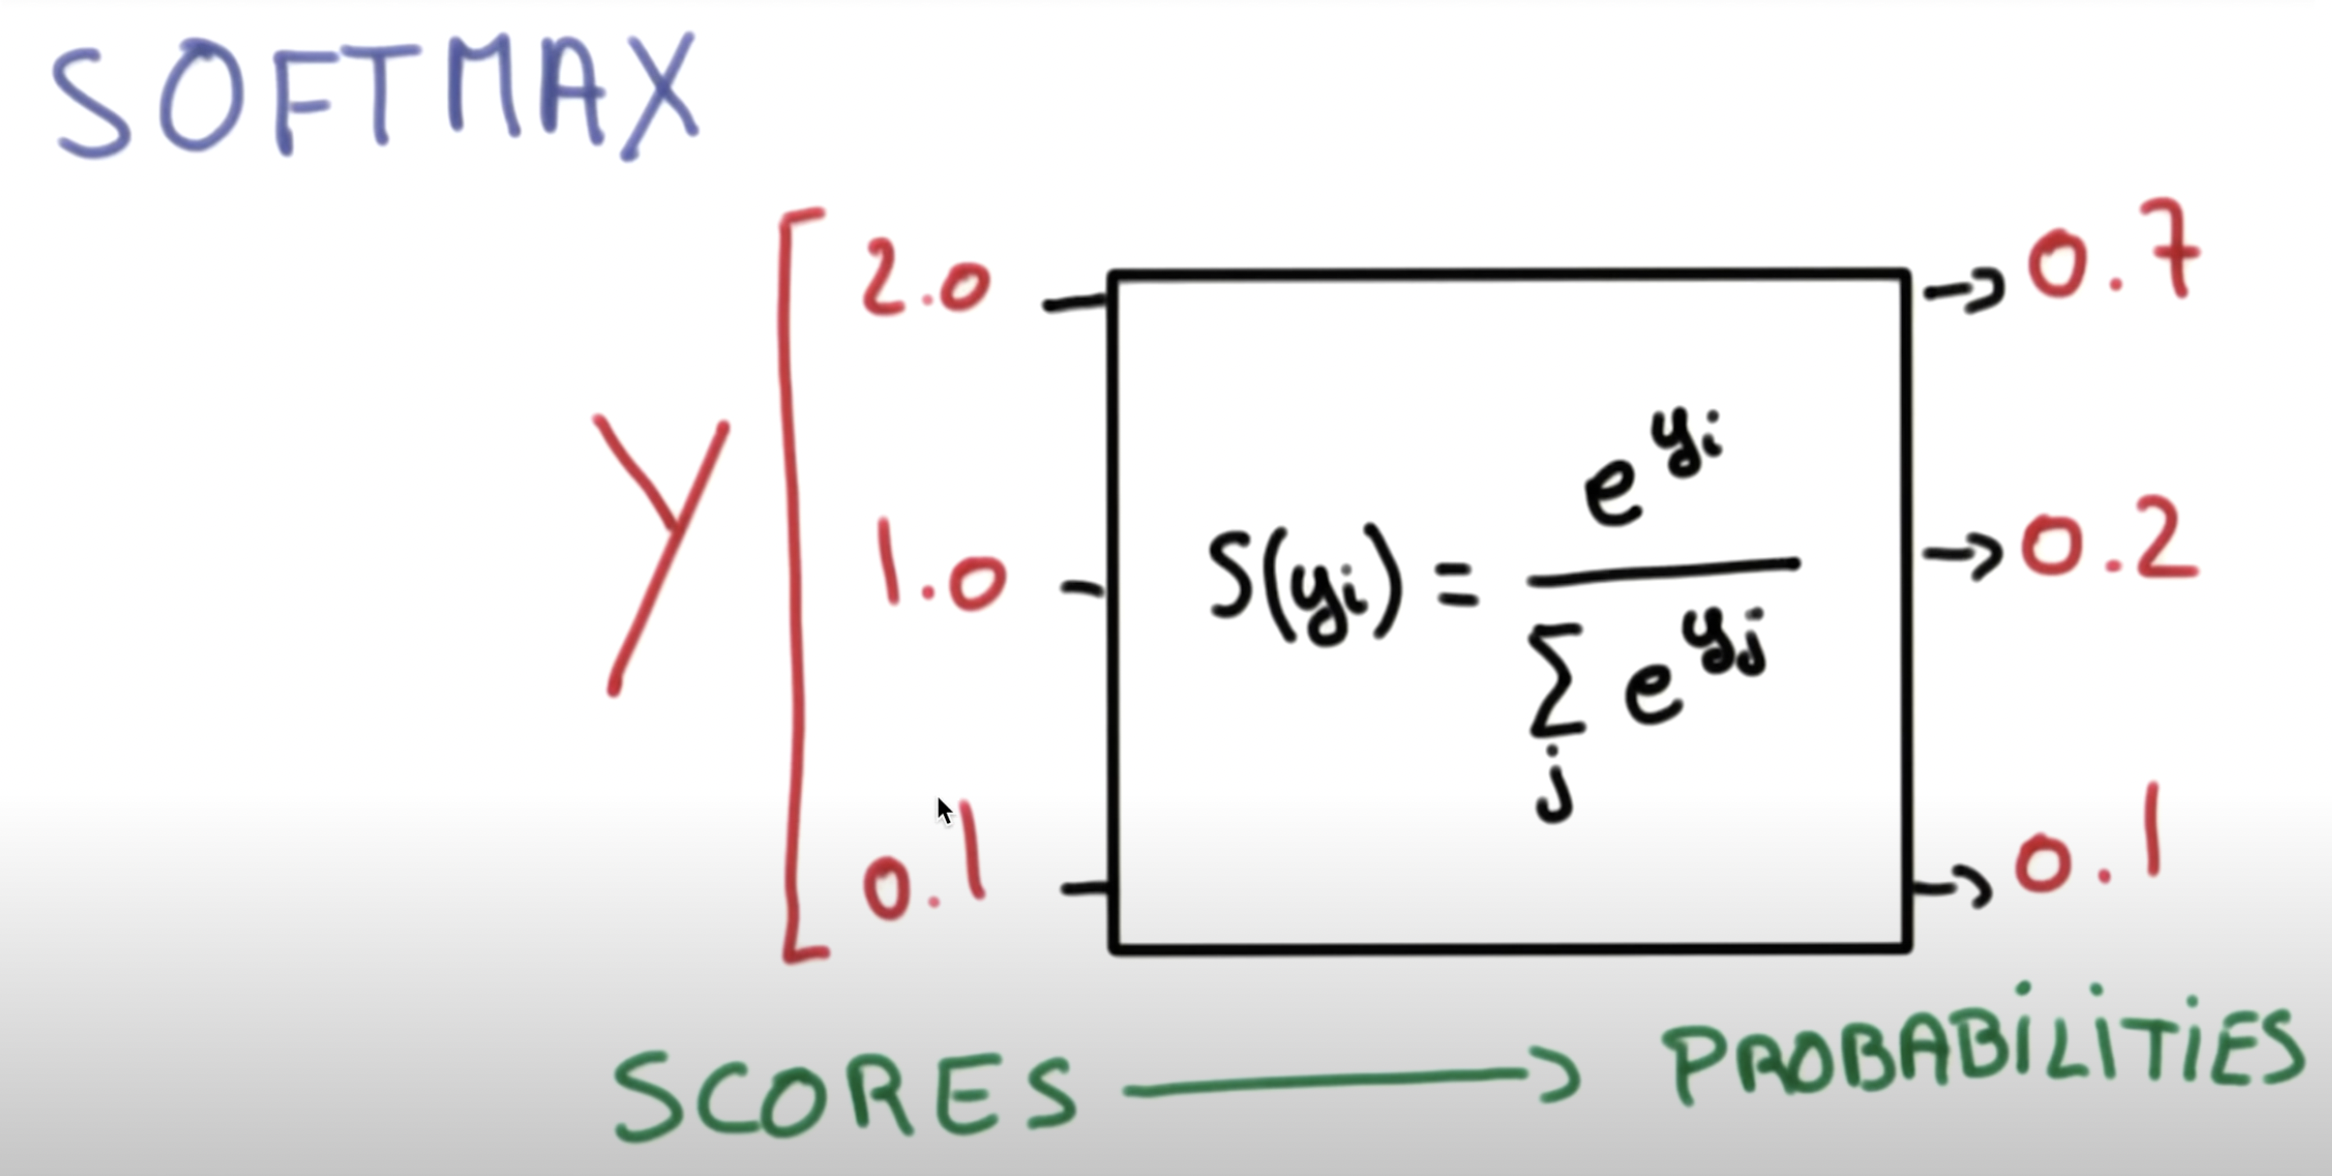 SOFTMAX
Y
2.0
1.0
0.1
S(yi) = e^yi / Σj e^yj
0.7
0.2
0.1
SCORES → PROBABiLiTiES